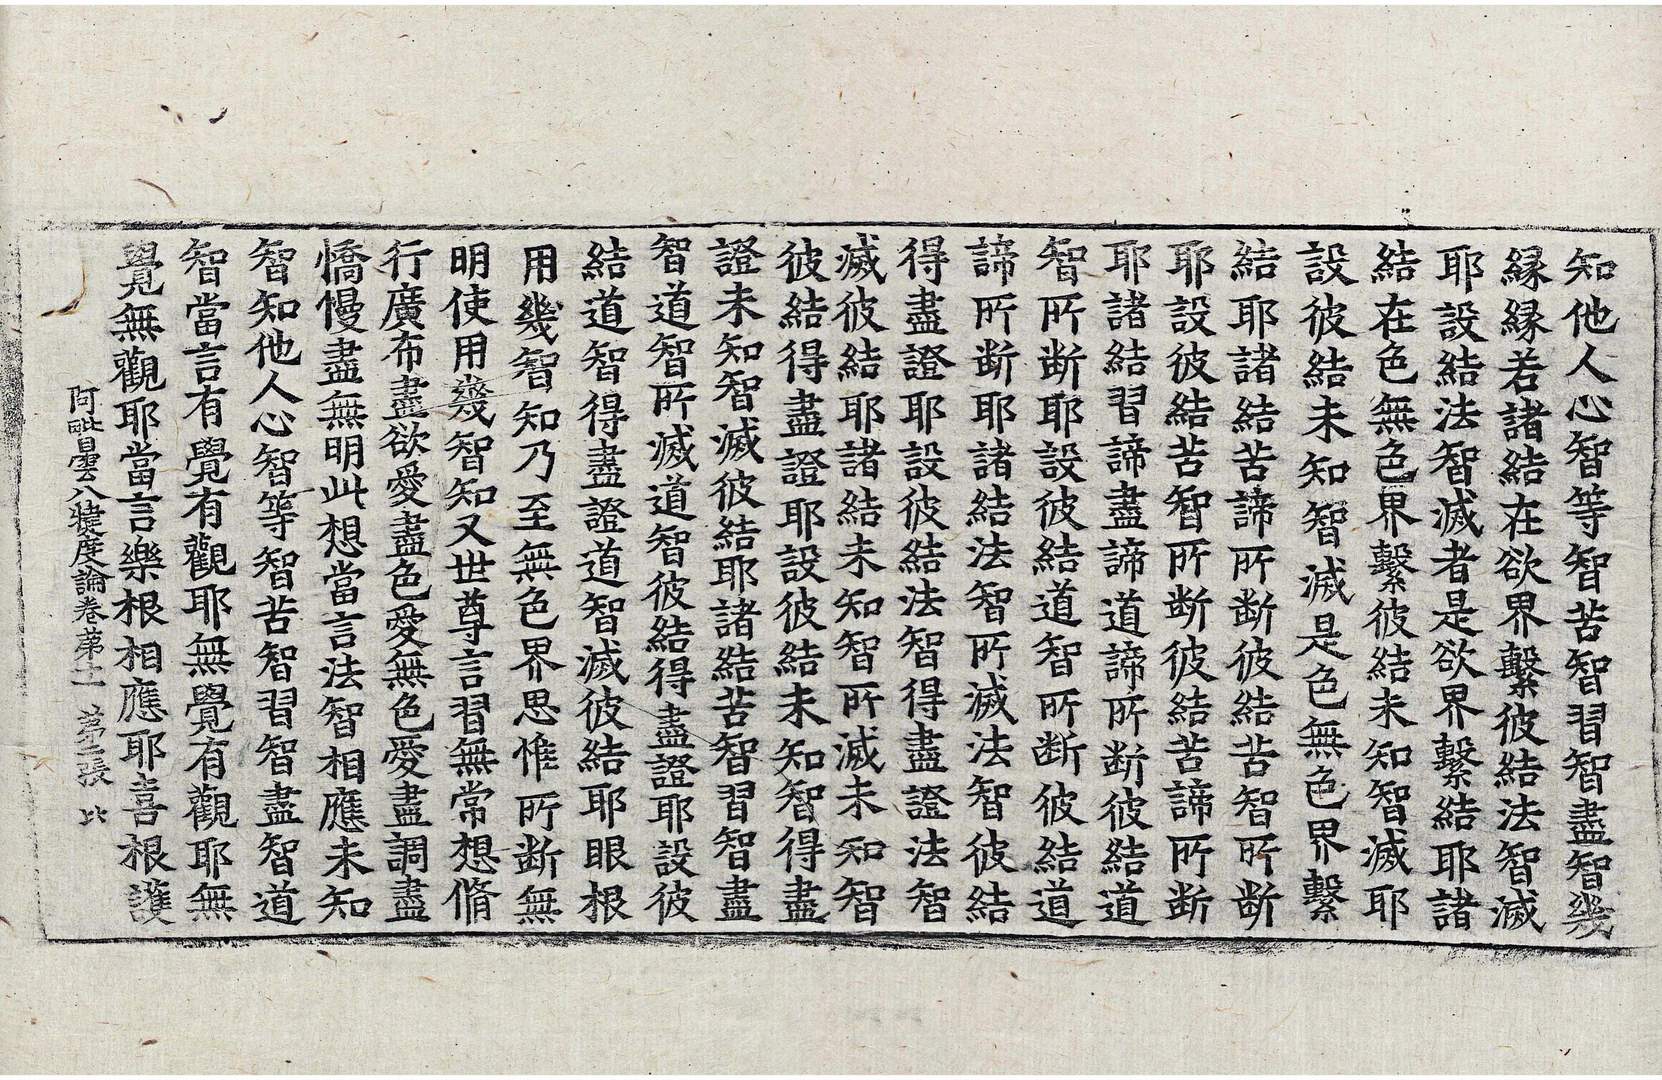 知他人心智等智苦智習智盡智幾
縁縁若諸結在欲界繫彼結法智滅
耶設結法智滅者是欲界繫結耶諸
結在色無色界繫彼結未知智滅耶
設彼結未知智滅是色無色界繫
結耶諸結苦諦所断彼結苦智所断
耶設彼結苦智所断彼結苦諦所断
耶諸結習諦盡諦道諦所断彼結道
智所断耶設彼結道智所断彼結道
諦所断耶諸結法智所滅法智彼結
得盡證耶設彼結法智得盡證法智
滅彼結耶諸結未知智所滅未知智
彼結得盡證耶設彼結未知智得盡
證未知智滅彼結耶諸結苦智習智盡
智道智所滅道智彼結得盡證耶設彼
結道智得盡證道智滅彼結耶眼根
用幾智知乃至無色界思惟所断無
明使用幾智知又世尊言習無常想脩
行廣布盡欲愛盡色愛無色愛盡調盡
憍慢盡無明此想當言法智相應未知
智知他人心智等智苦智習智盡智道
智當言有覺有觀耶無覺有觀耶無
覺無觀耶當言樂根相應耶喜根護
阿毗曇八犍度論卷第十一　第二張　比